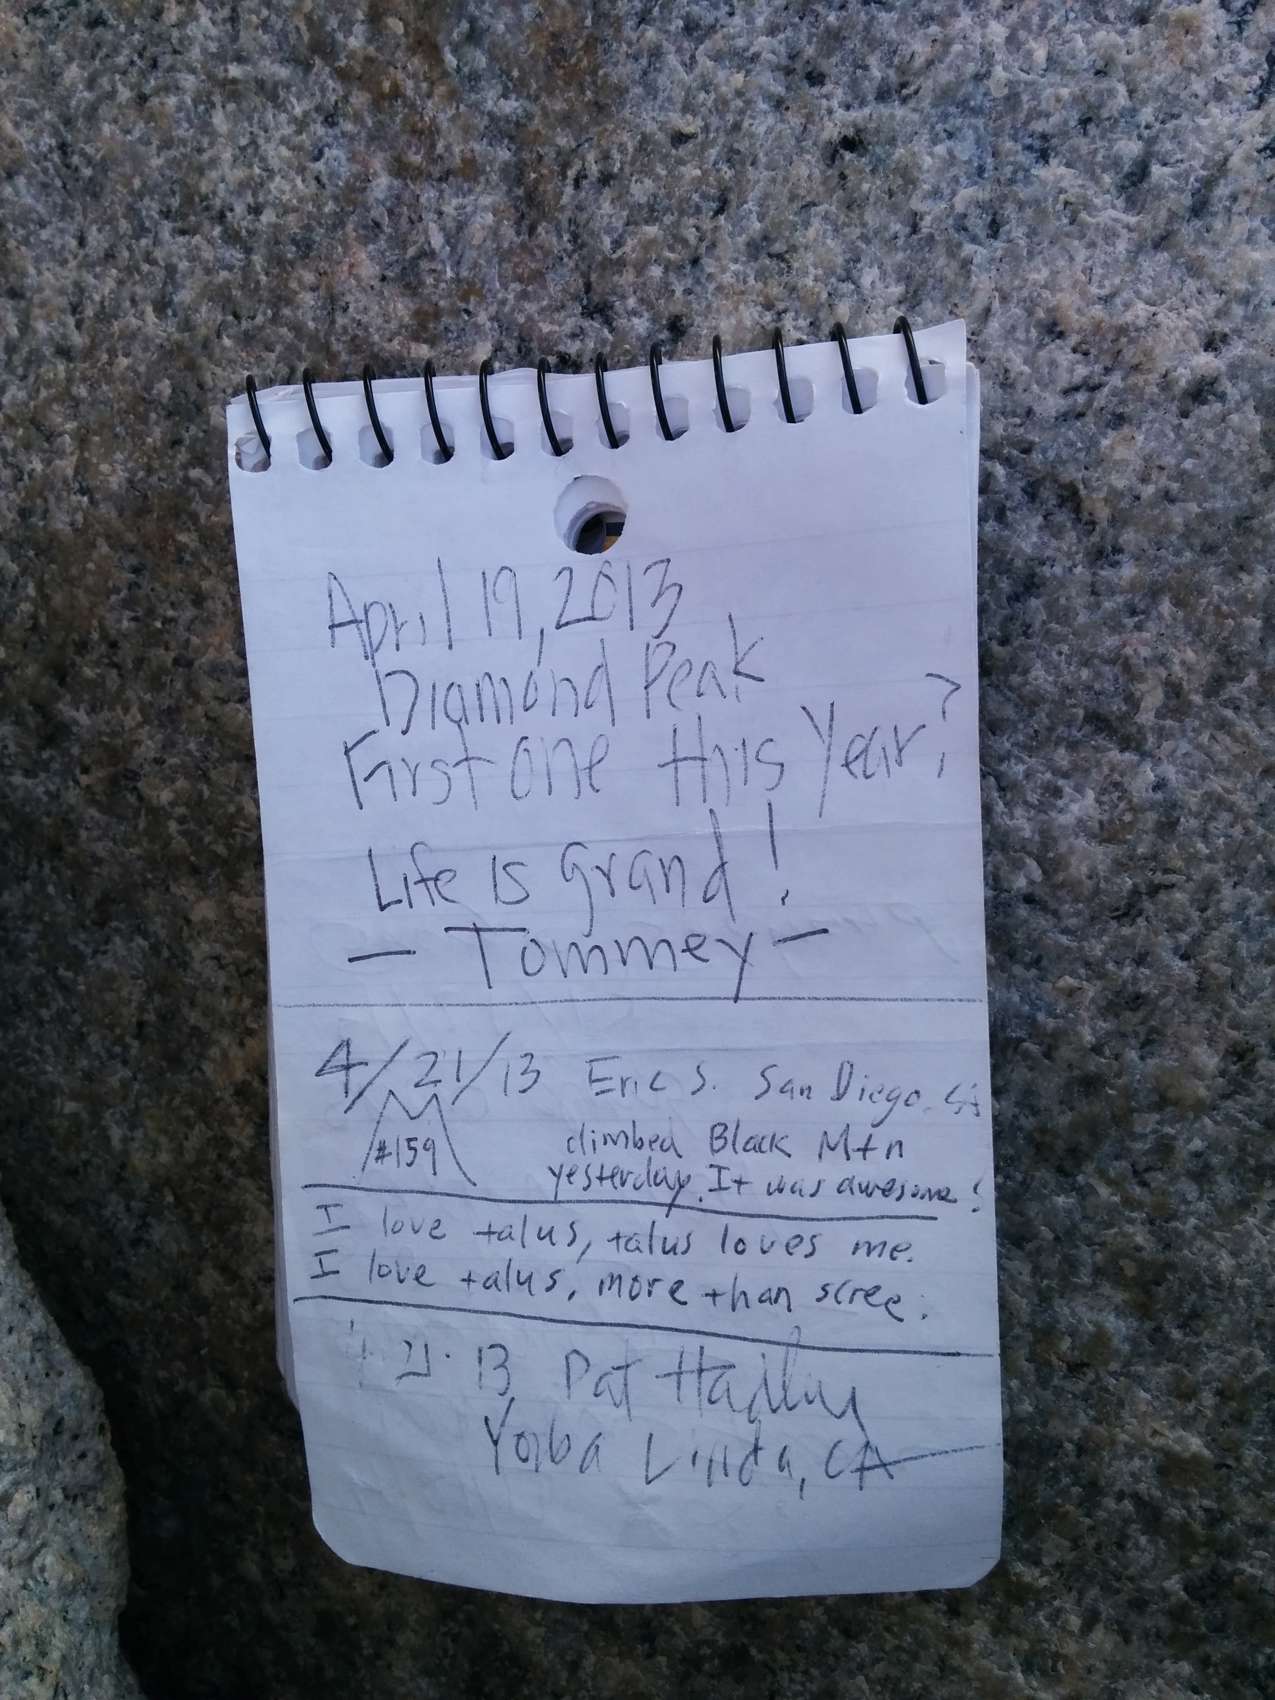 April 19, 2013
Diamond Peak
First one this Year?
Life is grand!
— Tommey —
4/21/13 Eric S. San Diego, CA
#159 climbed Black Mtn
yesterday. It was awesome!
I love talus, talus loves me.
I love talus, more than scree.
4·21·13 Pat Hadley
Yorba Linda, CA